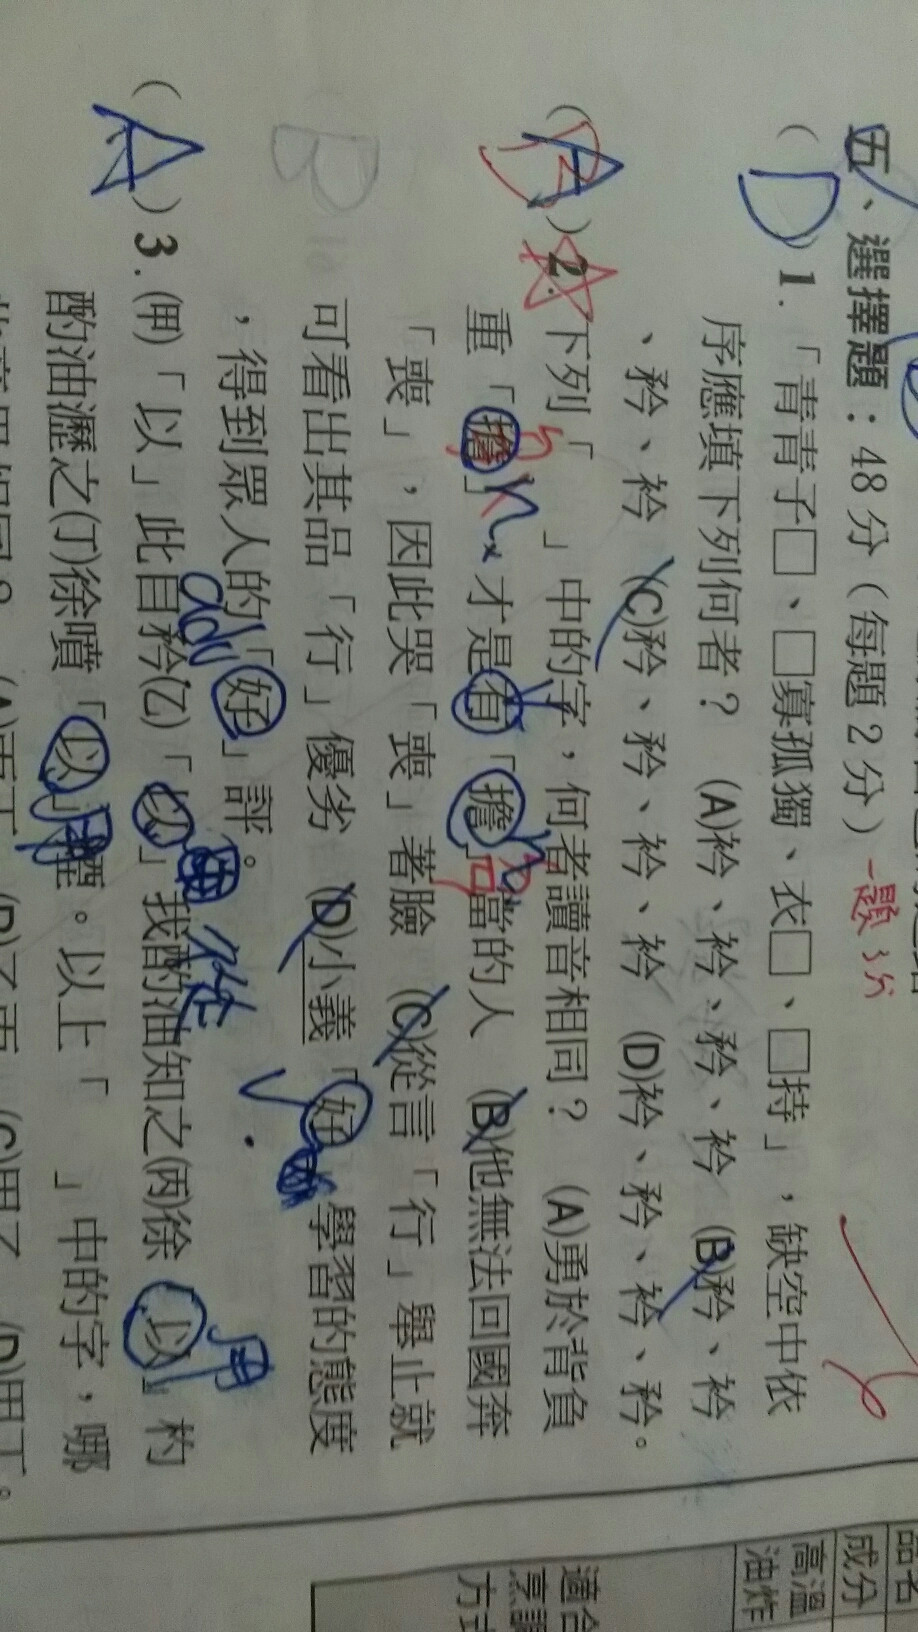 五、選擇題：48分（每題2分）一題3分
( D )1.「青青子□、□寡孤獨、衣□、□持」，缺空中依
序應填下列何者？ (A)衿、衿、矜、衿 (B)矜、衿
、矜、衿 (C)矜、矜、衿、衿 (D)衿、矜、衿、矜。
( A )2.下列「 」中的字，何者讀音相同？ (A)勇於背負
重「擔」才是有「擔」當的人 (B)他無法回國奔
「喪」，因此哭「喪」著臉 (C)從言「行」舉止就
可看出其品「行」優劣 (D)小義「好」學習的態度
，得到眾人的「好」評。
B
( A )3.(甲)「以」此自矜(乙)「以」我酌油知之(丙)徐「以」杓
酌油瀝之(丁)徐噴「以」醒。以上「 」中的字，哪
adv
用
用
品名
成分
高溫
油炸
適合
烹調
方式